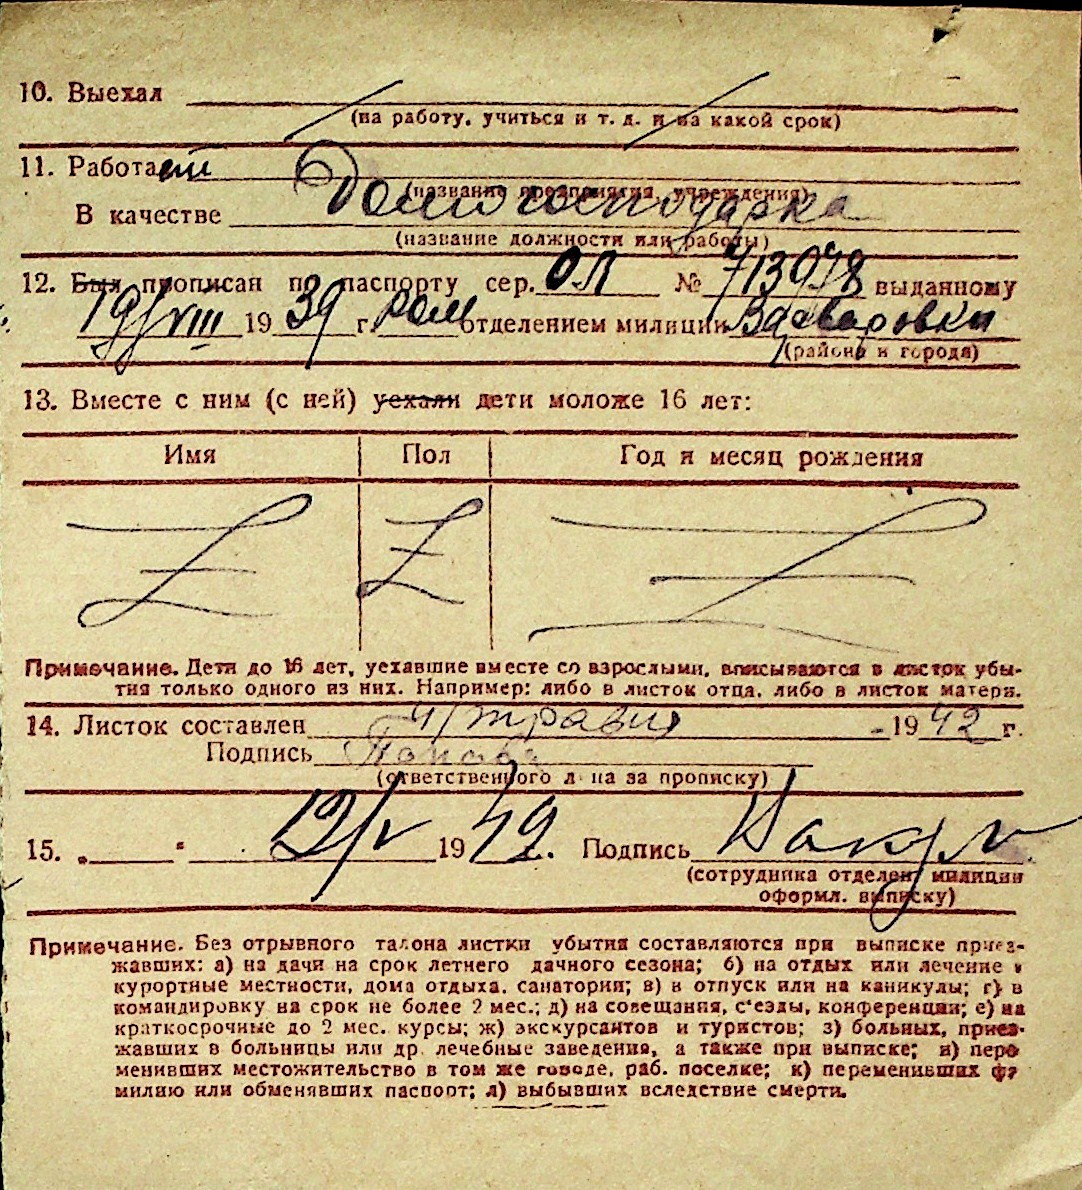 10. Выехал
(на работу, учиться и т. д. и на какой срок)
11. Работает
(название предприятия, учреждения)
В качестве Домогосподарка
(название должности или работы)
12. Был прописан по паспорту сер. ОЛ № 713978 выданному
19/VIII 1939 г. отделением милиции
(района и города)
13. Вместе с ним (с ней) уехали дети моложе 16 лет:
Имя Пол Год и месяц рождения
Примечание. Дети до 16 лет, уехавшие вместе со взрослыми, вписываются в листок убы-
тия только одного из них. Например: либо в листок отца, либо в листок матери.
14. Листок составлен 4/травня 1942 г.
Подпись
(ответственного лица за прописку)
15. „ " 12/V 1942. Подпись
(сотрудника отделен. милиции
оформл. выписку)
Примечание. Без отрывного талона листки убытия составляются при выписке приез-
жавших: а) на дачи на срок летнего дачного сезона; б) на отдых или лечение в
курортные местности, дома отдыха, санатории; в) в отпуск или на каникулы; г) в
командировку на срок не более 2 мес.; д) на совещания, с'езды, конференции; е) на
краткосрочные до 2 мес. курсы; ж) экскурсантов и туристов; з) больных, приез-
жавших в больницы или др. лечебные заведения, а также при выписке; и) пере
менивших местожительство в том же городе, раб. поселке; к) переменивших фа
милию или обменявших паспорт; л) выбывших вследствие смерти.